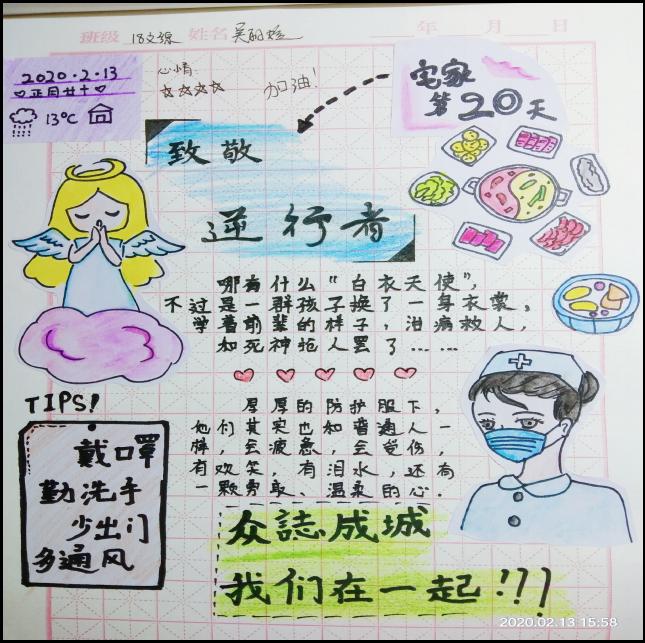 班级 18文源 姓名 吴丽 年 月 日
2020.2.13
♡正月廿十♡
13℃
心情:
☆☆☆☆
加油!
宅家
第20天
致敬
逆行者
哪有什么“白衣天使”,
不过是一群孩子换了一身衣裳,
学着前辈的样子,治病救人,
和死神抢人罢了……
厚厚的防护服下,
她们其实也和普通人一
样,会疲惫,会受伤,
有欢笑,有泪水,还有
一颗勇敢、温柔的心.
TIPS!
戴口罩
勤洗手
少出门
多通风
众誌成城
我们在一起!!!
2020.02.13 15:58